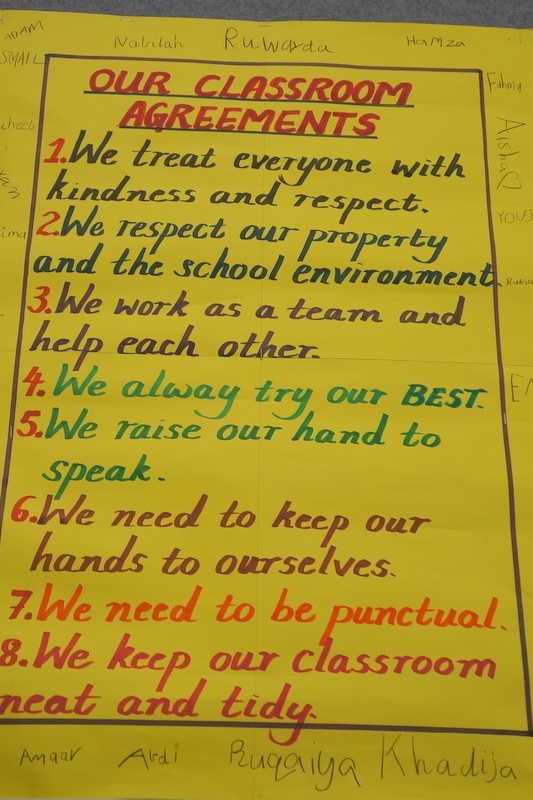 Nabilah Ruwayda HaMza
Fahma
Aisha
OUR CLASSROOM
AGREEMENTS
1.We treat everyone with
kindness and respect.
2.We respect our property
and the school environment.
3.We work as a team and
help each other.
4.We alway try our BEST.
5.We raise our hand to
speak.
6.We need to keep our
hands to ourselves.
7.We need to be punctual.
8.We keep our classroom
neat and tidy.
Amaar Abdi Ruqaiya Khadija